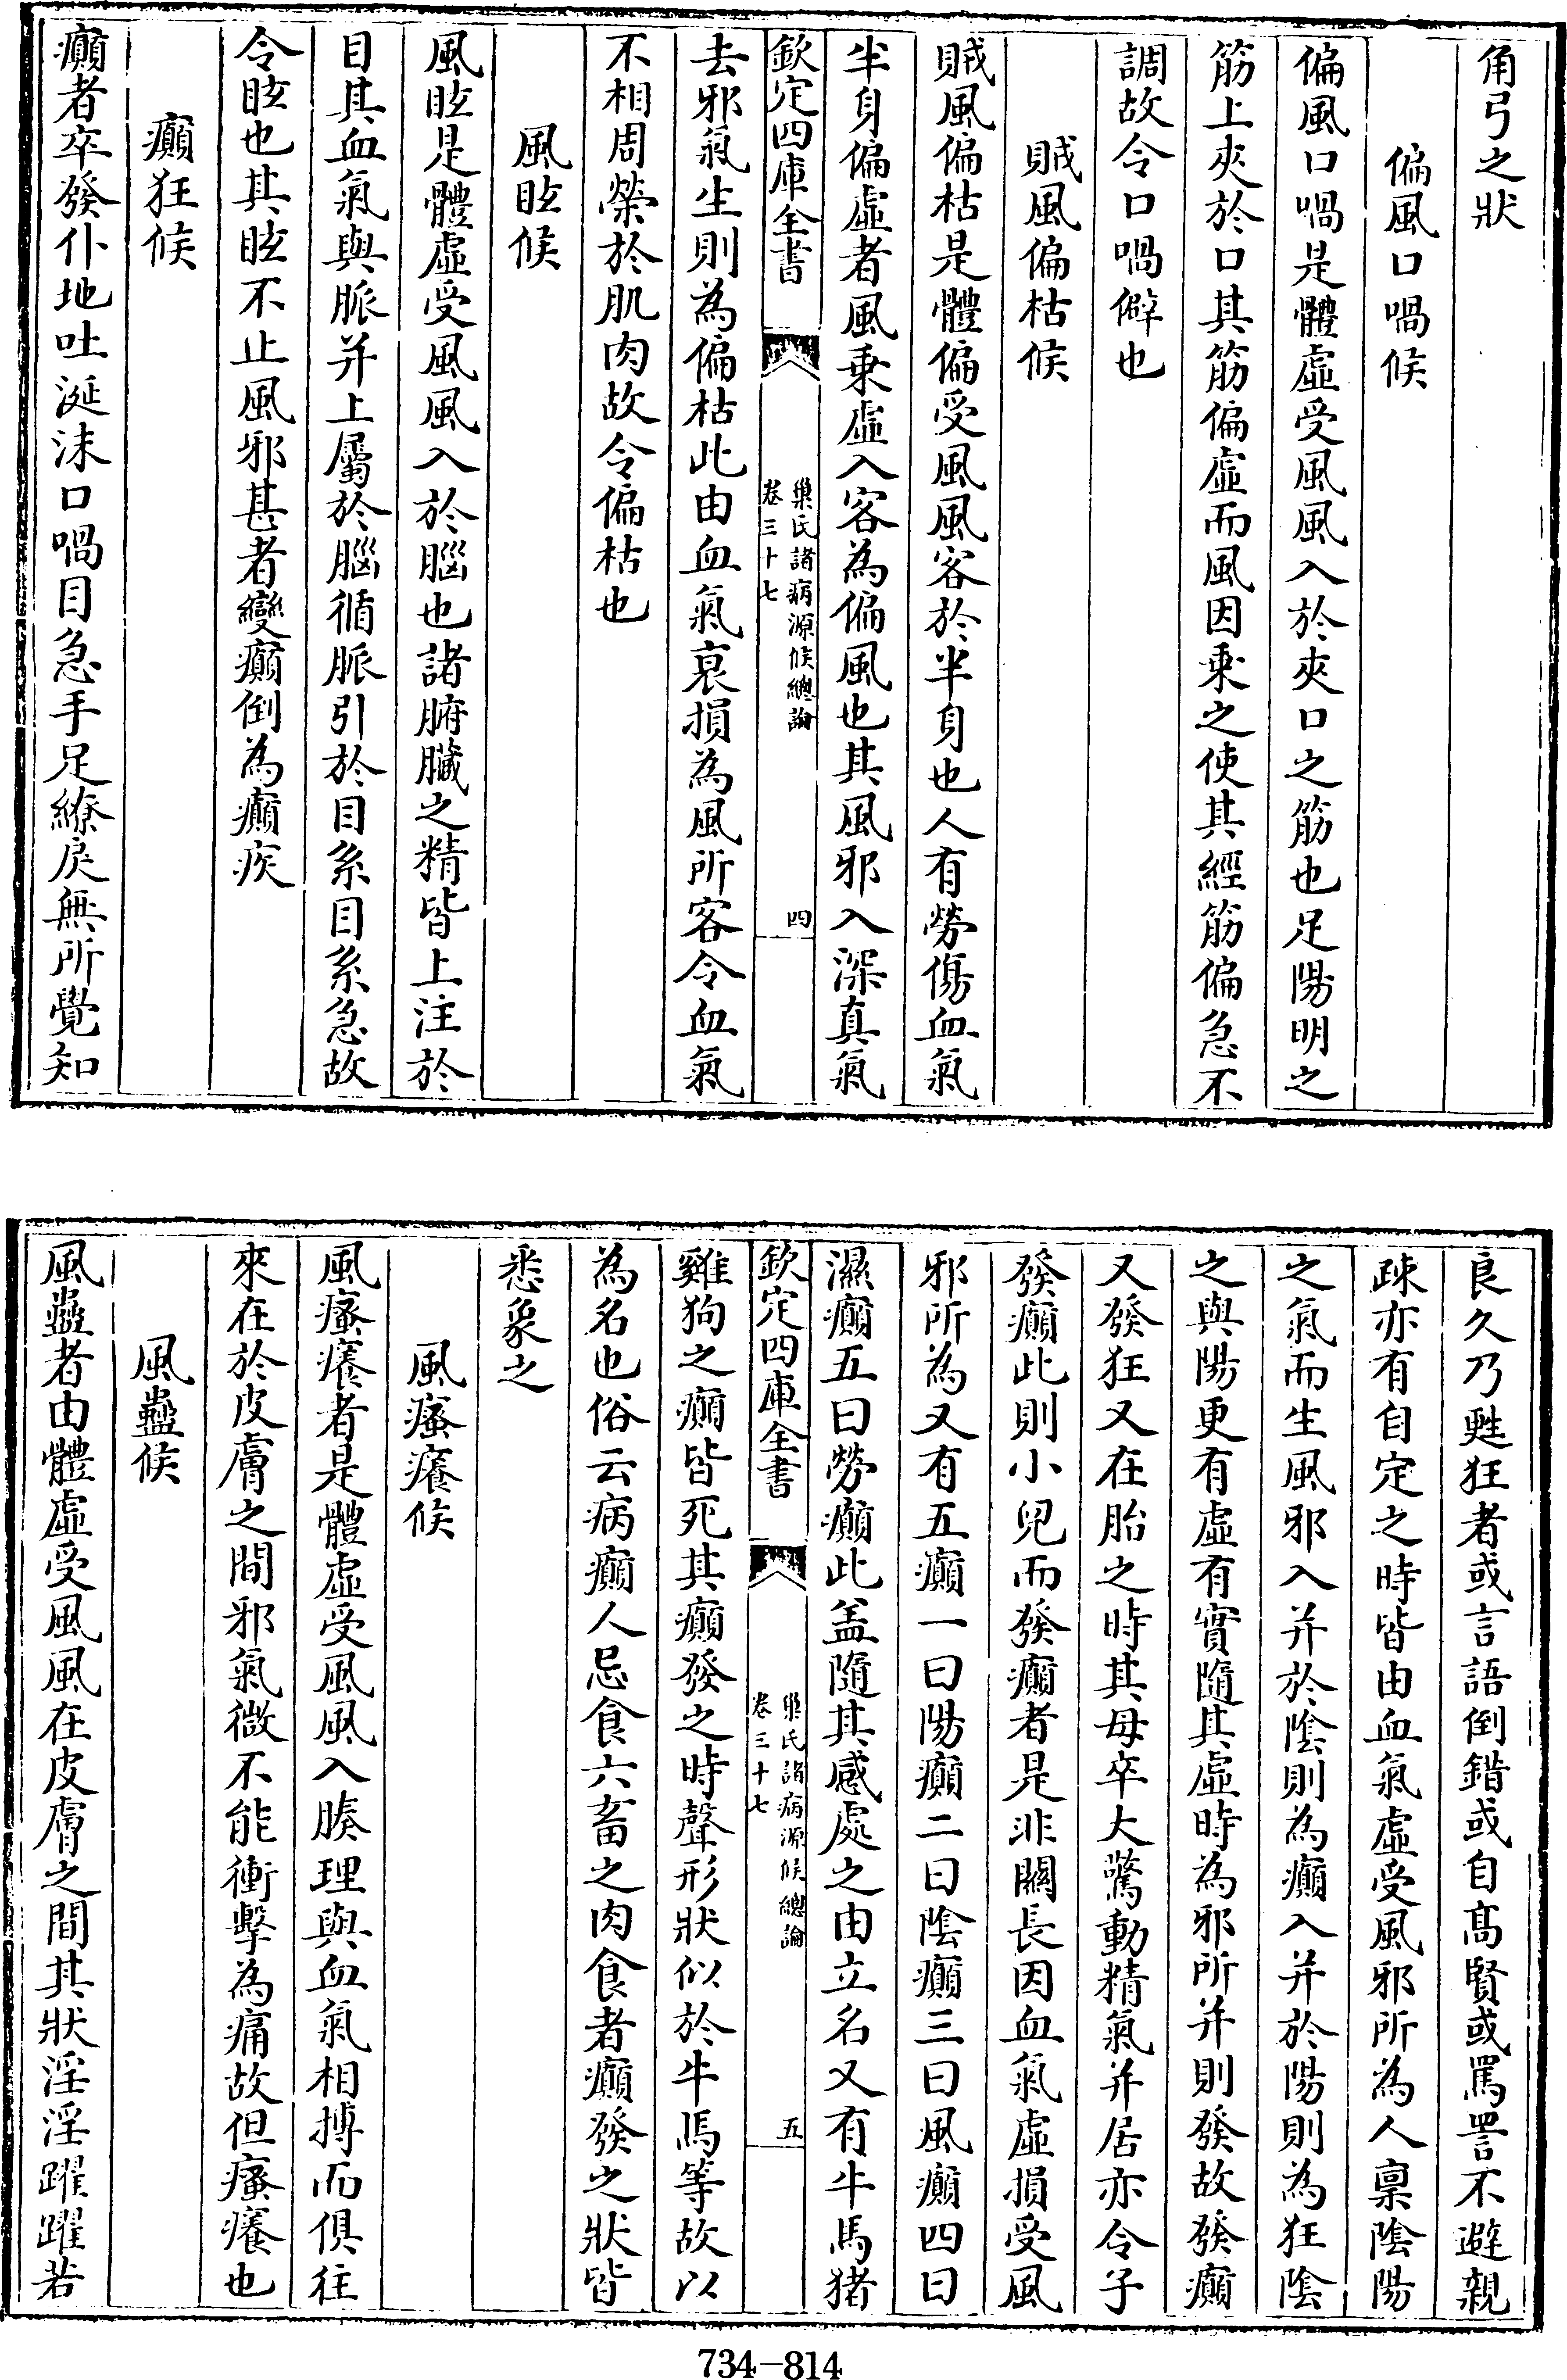 角弓之狀
偏風口喎候
偏風口喎是體虛受風風入於夾口之筋也足陽明之
筋上夾於口其筋偏虛而風因乘之使其經筋偏急不
調故令口喎僻也
賊風偏枯候
賊風偏枯是體偏受風風客於半身也人有勞傷血氣
半身偏虛者風乘虛入客為偏風也其風邪入深真氣
欽定四庫全書
巢氏諸病源候總論
卷三十七
四
去邪氣生則為偏枯此由血氣衰損為風所客令血氣
不相周榮於肌肉故令偏枯也
風眩候
風眩是體虛受風風入於腦也諸腑臟之精皆上注於
目其血氣與脈并上屬於腦循脈引於目系目系急故
令眩也其眩不止風邪甚者變癲倒為癲疾
癲狂候
癲者卒發仆地吐涎沫口喎目急手足繚戾無所覺知
良久乃甦狂者或言語倒錯或自高賢或罵詈不避親
疎亦有自定之時皆由血氣虛受風邪所為人稟陰陽
之氣而生風邪入并於陰則為癲入并於陽則為狂陰
之與陽更有虛有實隨其虛時為邪所并則發故發癲
又發狂又在胎之時其母卒大驚動精氣并居亦令子
發癲此則小兒而發癲者是非關長因血氣虛損受風
邪所為又有五癲一曰陽癲二曰陰癲三曰風癲四曰
濕癲五曰勞癲此盖隨其感處之由立名又有牛馬猪
欽定四庫全書
巢氏諸病源候總論
卷三十七
五
雞狗之癲皆死其癲發之時聲形狀似於牛馬等故以
為名也俗云病癲人忌食六畜之肉食者癲發之狀皆
悉象之
風瘙癢候
風瘙癢者是體虛受風風入腠理與血氣相搏而俱往
來在於皮膚之間邪氣微不能衝擊為痛故但瘙癢也
風蠱候
風蠱者由體虛受風風在皮膚之間其狀淫淫躍躍若
734-814